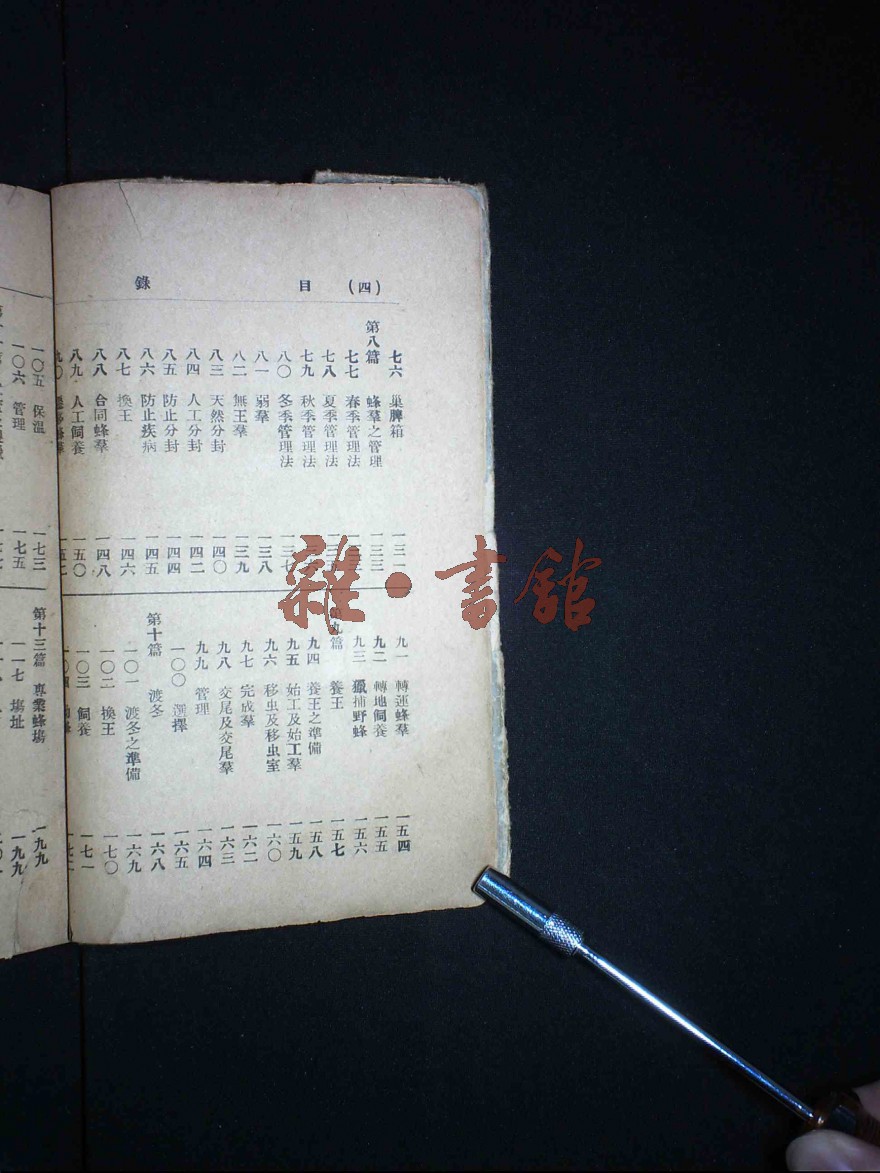 (四) 目 錄
七六 巢脾箱 一三一
第八篇 蜂羣之管理 一三三
七七 春季管理法
七八 夏季管理法
七九 秋季管理法
八〇 冬季管理法 一三七
八一 弱羣 一三八
八二 無王羣 一三九
八三 天然分封 一四〇
八四 人工分封 一四二
八五 防止分封 一四四
八六 防止疾病 一四五
八七 換王 一四六
八八 合同蜂羣 一四八
八九 人工飼養 一五〇
九〇
九一 轉運蜂羣 一五四
九二 轉地飼養 一五五
九三 獵捕野蜂 一五六
第九篇 養王 一五七
九四 養王之準備 一五八
九五 始工及始工羣 一五九
九六 移虫及移虫室 一六〇
九七 完成羣 一六二
九八 交尾及交尾羣 一六三
九九 管理 一六四
一〇〇 選擇 一六五
第十篇 渡冬 一六八
一〇一 渡冬之準備 一六九
一〇二 換王 一七〇
一〇三 飼養 一七一
一〇五 保溫 一七三
一〇六 管理 一七五
第十三篇 專業蜂場 一九九
一一七 場址 一九九
雜·書館